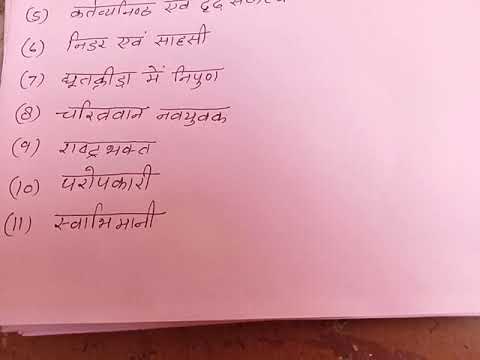 (5) कर्तव्यनिष्ठ एवं दृढ़
(6) निडर एवं साहसी
(7) द्यूतक्रीड़ा में निपुण
(8) चरित्रवान नवयुवक
(9) राष्ट्रभक्त
(10) परोपकारी
(11) स्वाभिमानी